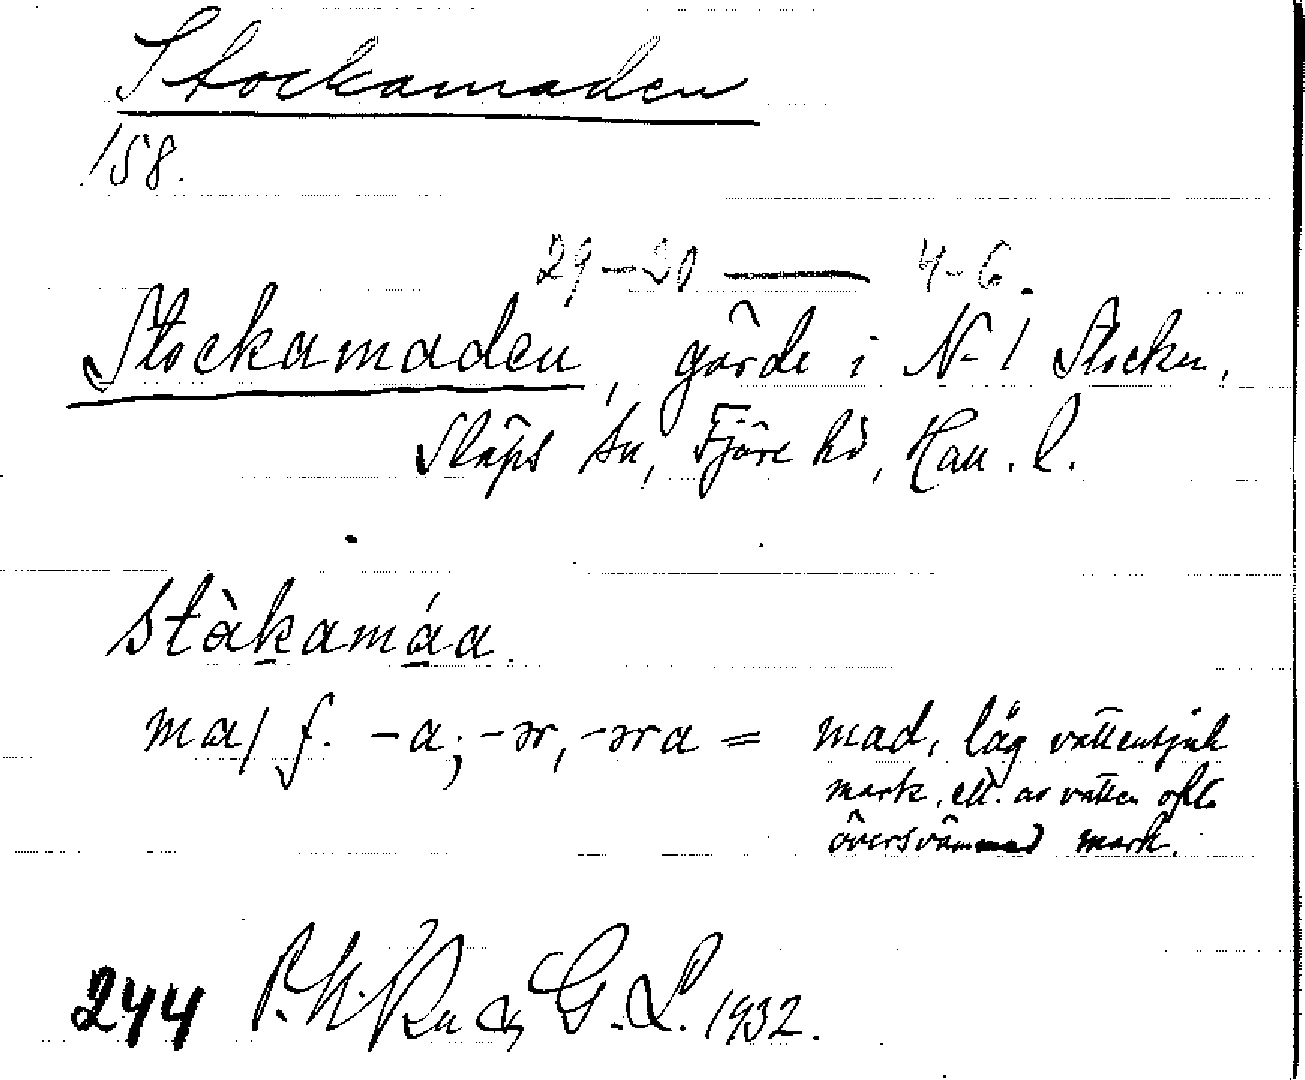 Stockamaden
158.
29-30 — 4-6.
Stockamaden, gärde i N-1 Stocken,
Släps sn, Fjäre hd, Hall. l.
stàkamáa
ma/ f. -a; -ər, -əra = mad, låg vattensjuk
mark, ell. av vatten ofta
översvämmad mark.
244 & G. L. 1932.